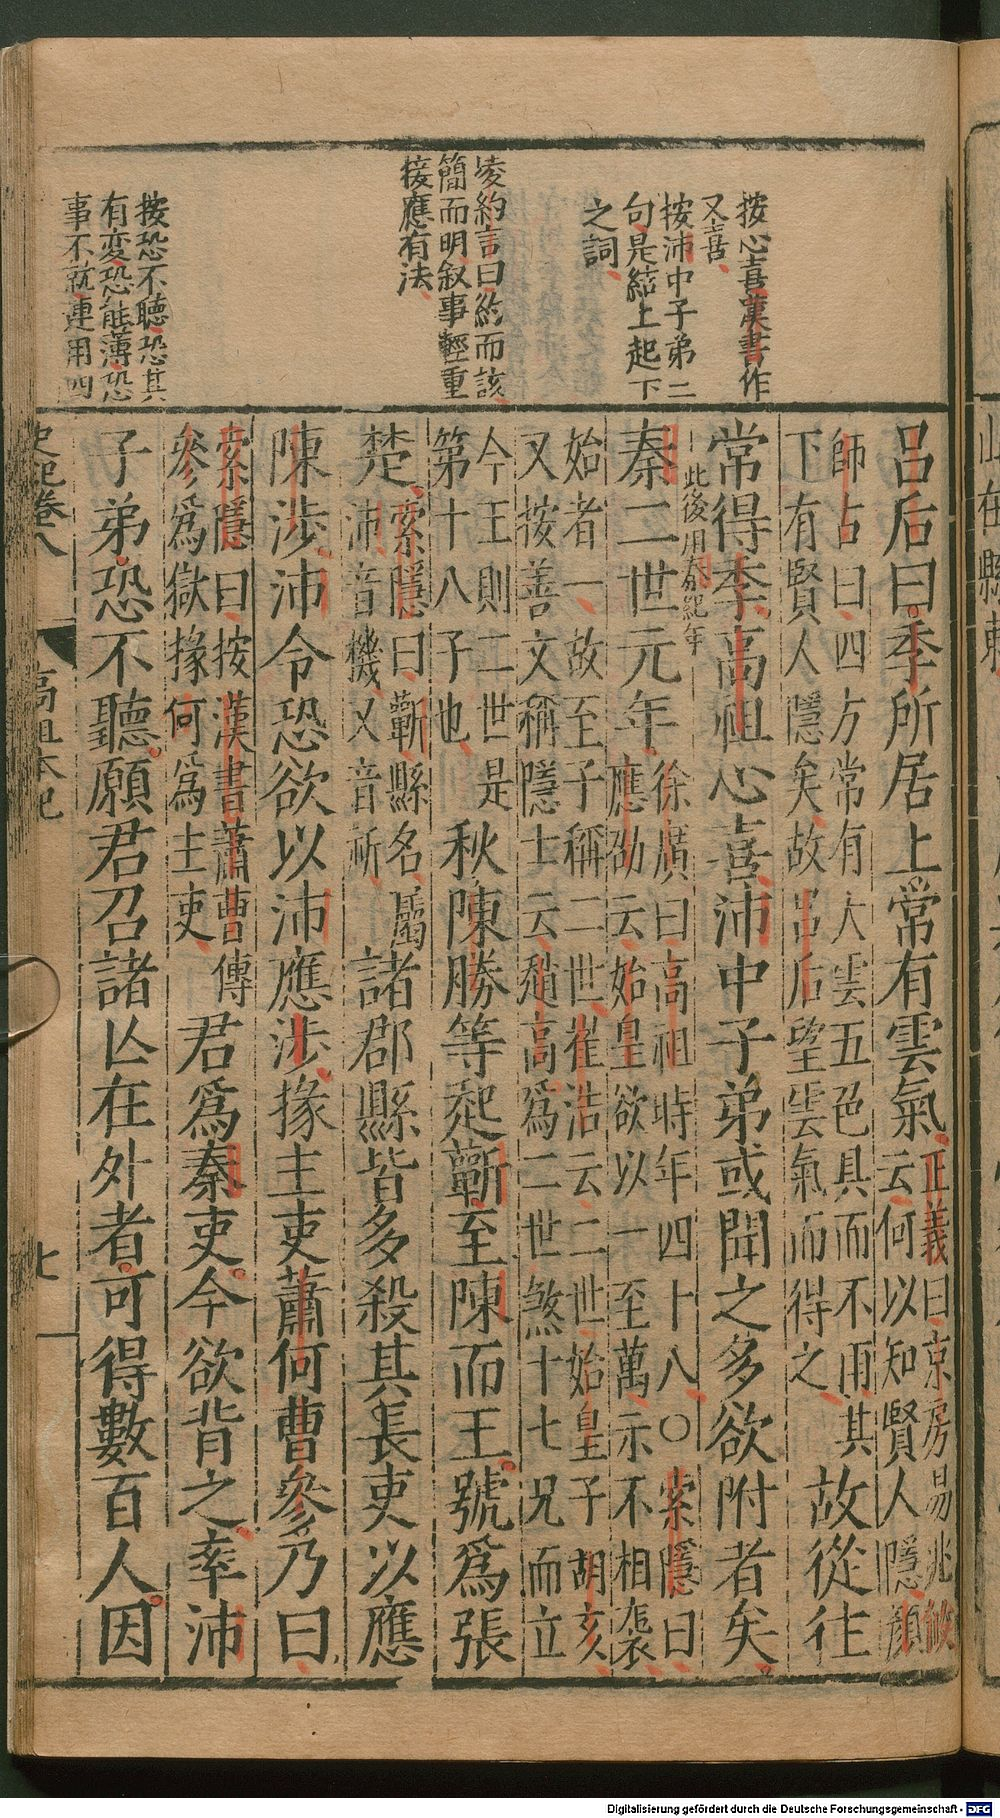 按心喜漢書作
又喜
按沛中子弟二
句是結上起下
之詞
凌約言曰約而該
簡而明叙事輕重
接應有法
按恐不聽恐其
有変恐能薄恐
事不就連用四
呂后曰季所居上常有雲氣正義曰京房易兆候
云何以知賢人隱顔
師占曰四方常有大雲五色具而不雨其
下有賢人隱矣故呂后望雲氣而得之故從往
常得季高祖心喜沛中子弟或聞之多欲附者矣
此後用秦紀年
秦二世元年徐廣曰高祖時年四十八○索隱曰
應劭云始皇欲以一至萬示不相襲
始者一故至子稱二世崔浩云二世始皇子胡亥
又按善文稱隱士云趙高爲二世煞十七兄而立
今王則二世是
第十八子也秋陳勝等起蘄至陳而王號爲張
楚索隱曰蘄縣名屬
沛音機又音祈諸郡縣皆多殺其長吏以應
陳涉沛令恐欲以沛應涉掾主吏蕭何曹參乃曰
索隱曰按漢書蕭曹傳
參爲獄掾何爲主吏君爲秦吏今欲背之率沛
子弟恐不聽願君召諸亾在外者可得數百人因
史記卷八
高祖本紀
七
Digitalisierung gefördert durch die Deutsche Forschungsgemeinschaft - DFG